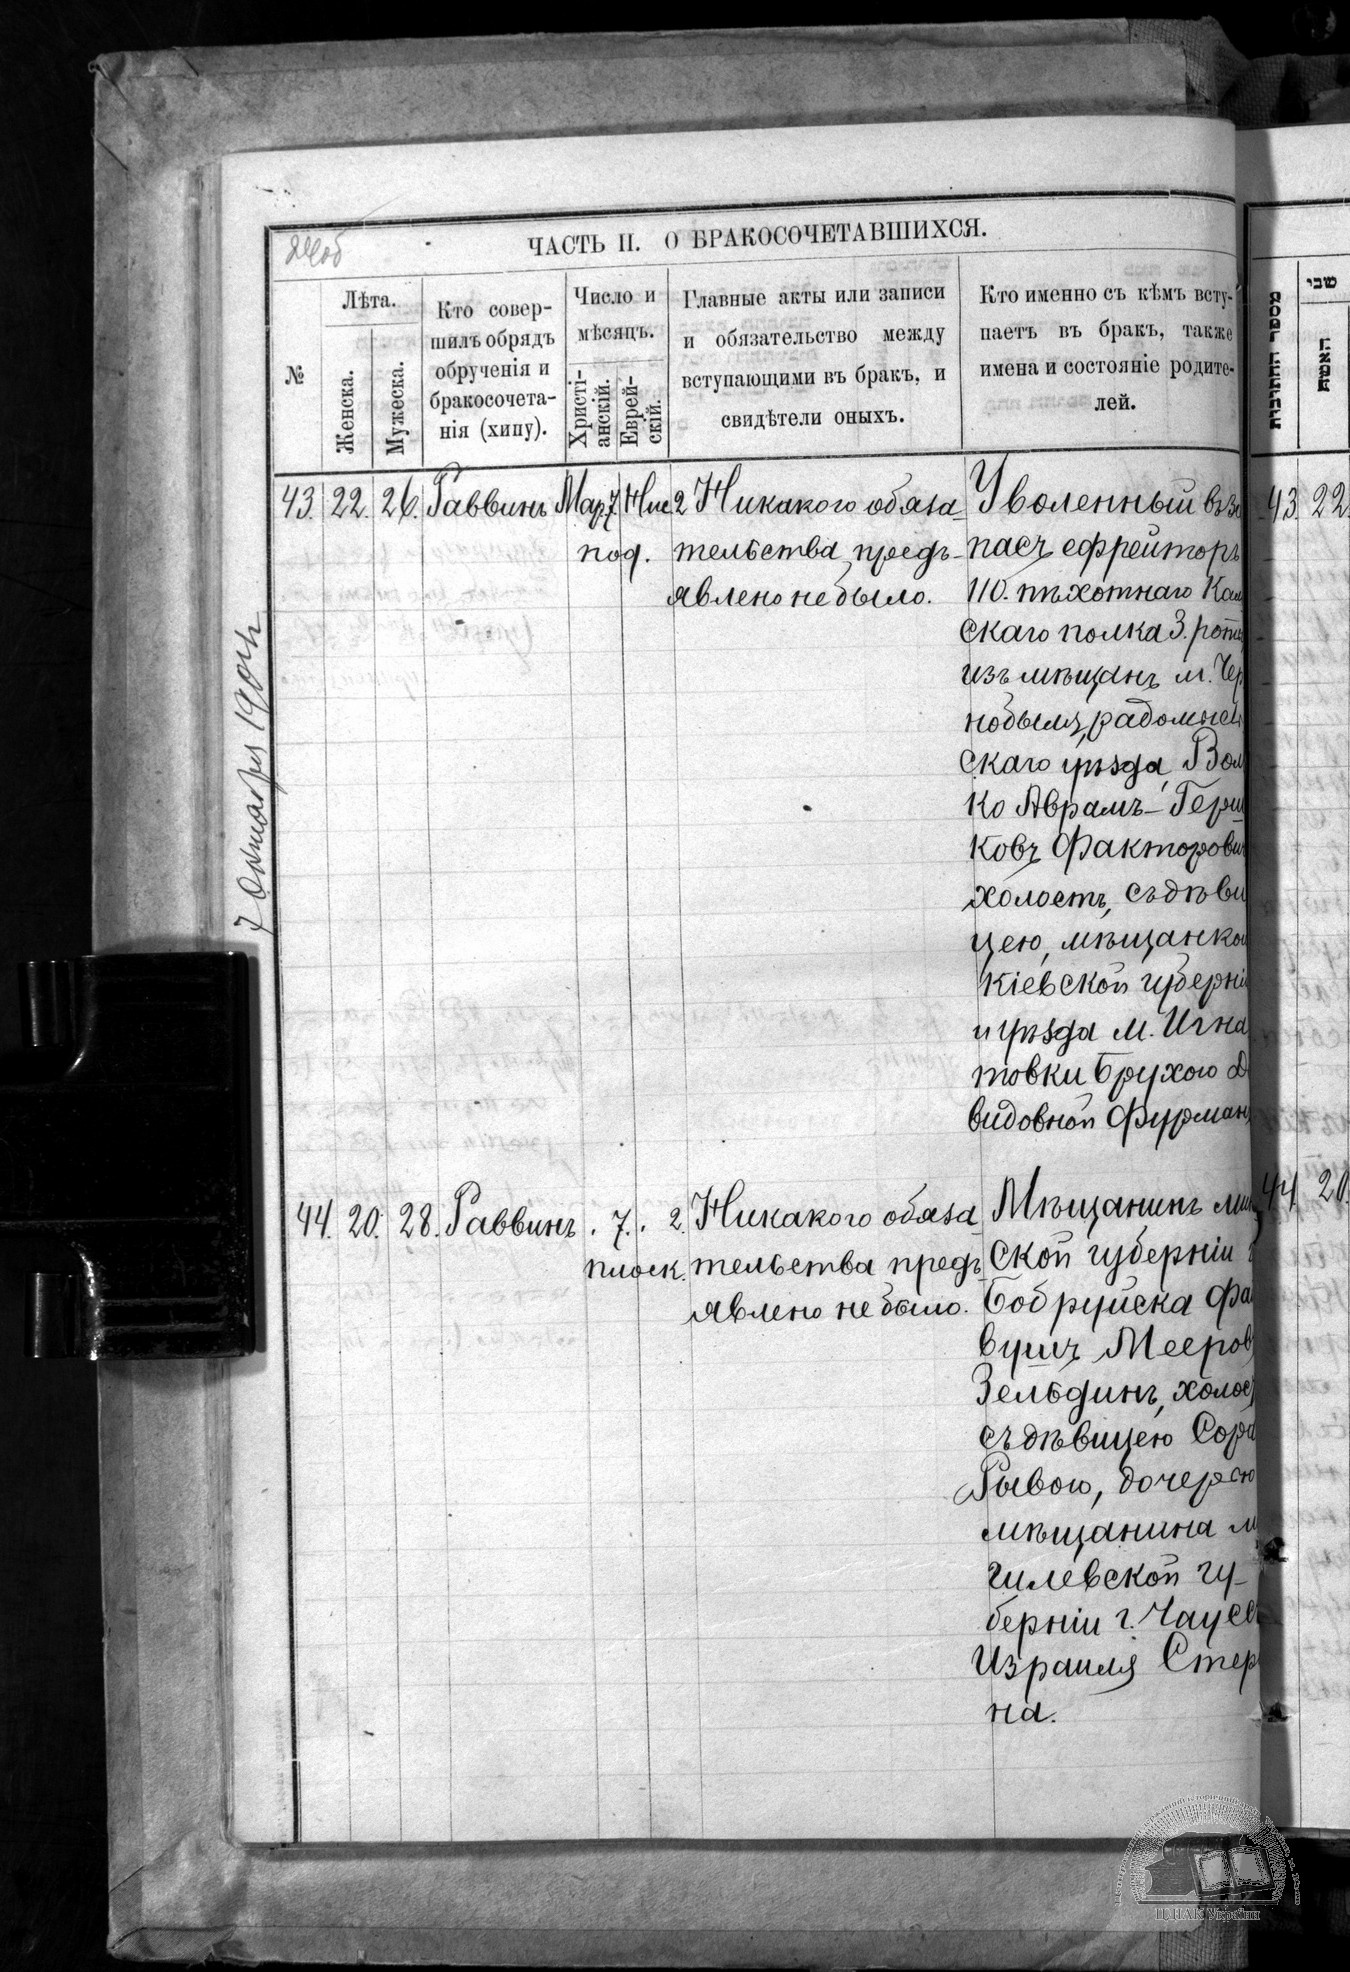 ЧАСТЬ II. О БРАКОСОЧЕТАВШИХСЯ.
№
Лѣта.
Женска.
Мужеска.
Кто совер-
шилъ обрядъ
обрученія и
бракосочета-
нія (хипу).
Число и
мѣсяцъ.
Христі-
анскій.
Еврей-
скій.
Главные акты или записи
и обязательство между
вступающими въ бракъ, и
свидѣтели оныхъ.
Кто именно съ кѣмъ всту-
паетъ въ бракъ, также
имена и состояніе родите-
лей.
43. 22. 26. Раввинъ Мар 7 Нис 2
под.
Никакого обяза-
тельства предъ-
явлено не было.
Уволенный въ за
пасъ ефрейторъ
110. пѣхотнаго Кам
скаго полка 3. роты
изъ мѣщанъ м. Чер
нобыля, радомысл
скаго уѣзда, Вол
ко Аврамъ-Герш
ковъ Факторович
холостъ, съ дѣви
цею, мѣщанкой
Кіевской губерніи
и уѣзда м. Игна
товки Брухою Д
видовной Фурман
44. 20. 28. Раввинъ . 7. . 2.
плоск.
Никакого обяза
тельства предъ
явлено не было.
Мѣщанинъ мин
ской губерніи г
Бобруйска Фа
вушъ Мееров
Зельдинъ, холост
съ дѣвицею Сора
Рывою, дочерью
мѣщанина м
гилевской гу-
берніи г. Чаусс
Израиля Стер
на.
7 Октября 1904 г.
מספר החתונות
שני
האשה
43. 22.
44. 20.
ЦДІАК України